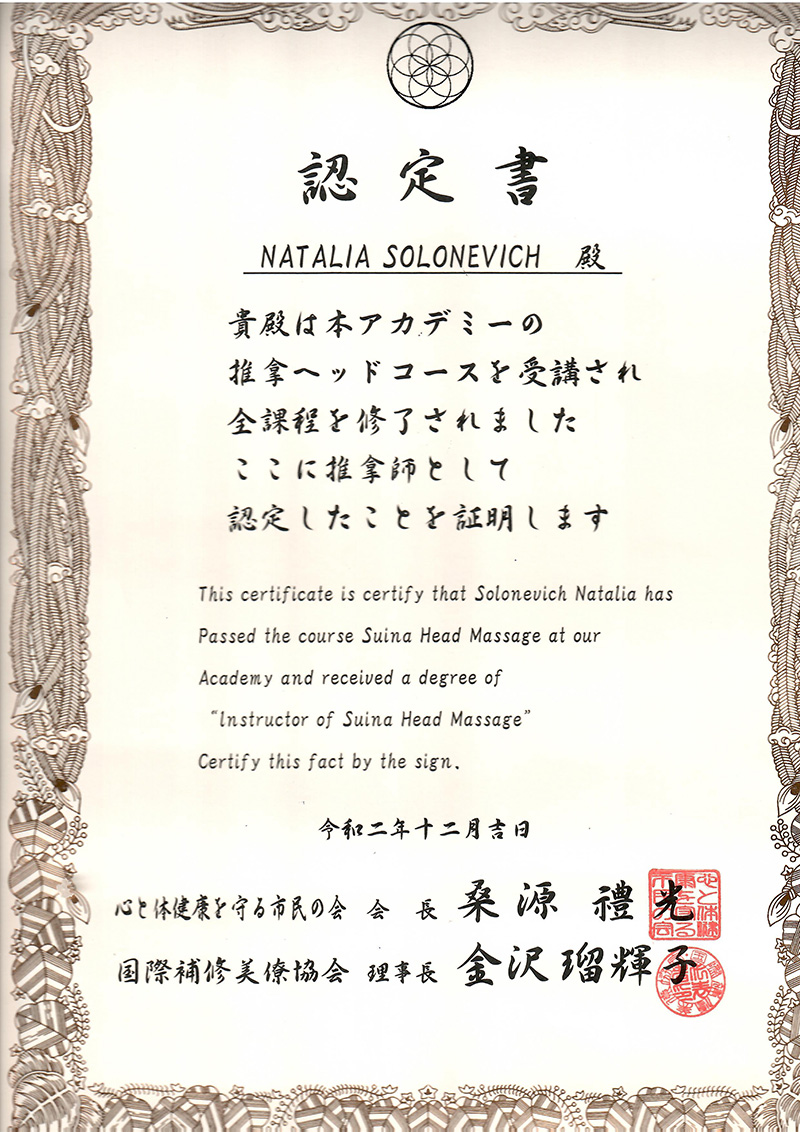 認定書
NATALIA SOLONEVICH 殿
貴殿は本アカデミーの
推拿ヘッドコースを受講され
全課程を修了されました
ここに推拿師として
認定したことを証明します
This certificate is certify that Solonevich Natalia has
Passed the course Suina Head Massage at our
Academy and received a degree of
“Instructor of Suina Head Massage”
Certify this fact by the sign.
令和二年十二月吉日
心と体健康を守る市民の会 会長 桑源 禮光
国際補修美僚協会 理事長 金沢瑠輝子